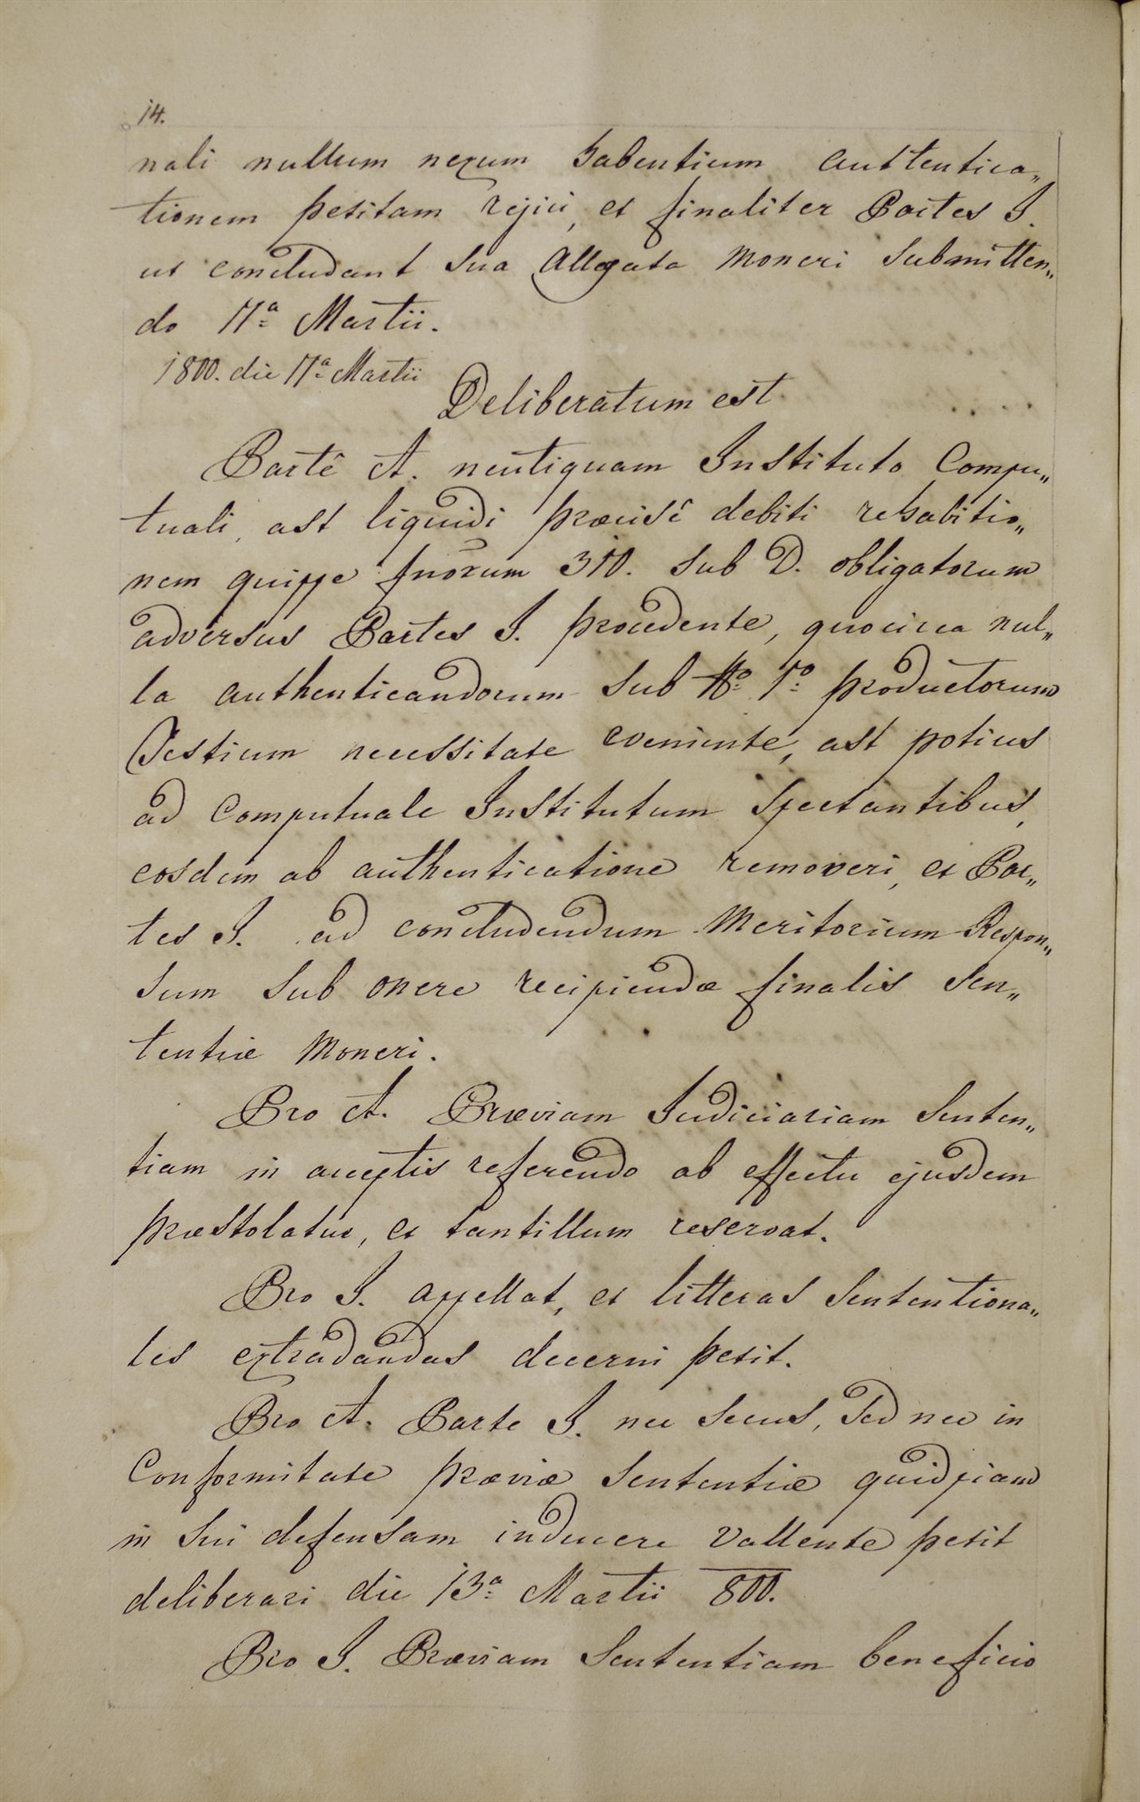 14.
nali nullum nexum habentium authentica„
tionem petitam rejici, et finaliter Partes I.
ut concludant sua Allegata moneri submitten„
do 11ª Martii.
1800. die 11ª Martii
Deliberatum est
Partê A. neutiquam Instituto Compu„
tuali, ast liquidi præcisê debiti rehabitio„
nem quippe fnorum 310. sub D. obligatorum
adversus Partes I. procedente, quocirca nul„
la authenticandorum sub No 1o productorum
Testium necessitate eveniente, ast potius
ad Computuale Institutum spectantibus,
eosdem ab authenticatione removeri, et Par„
tes I. ad concludendum Meritorium Respon„
sum sub onere recipiendæ finalis Sen„
tentiæ moneri.
Pro A. Præviam Judiciariam Senten„
tiam in acceptis referendo ab effectu ejusdem
præstolatur, et tantillum reservat.
Pro I. appellat, et litteras Sententiona„
les extradandas decerni petit.
Pro A. Parte I. nec secus, sed nec in
Conformitate præviæ Sententiæ quidpiam
in sui defensam inducere vallente petit
deliberari die 13ª Martii 800.
Pro I. Præviam Sententiam beneficio